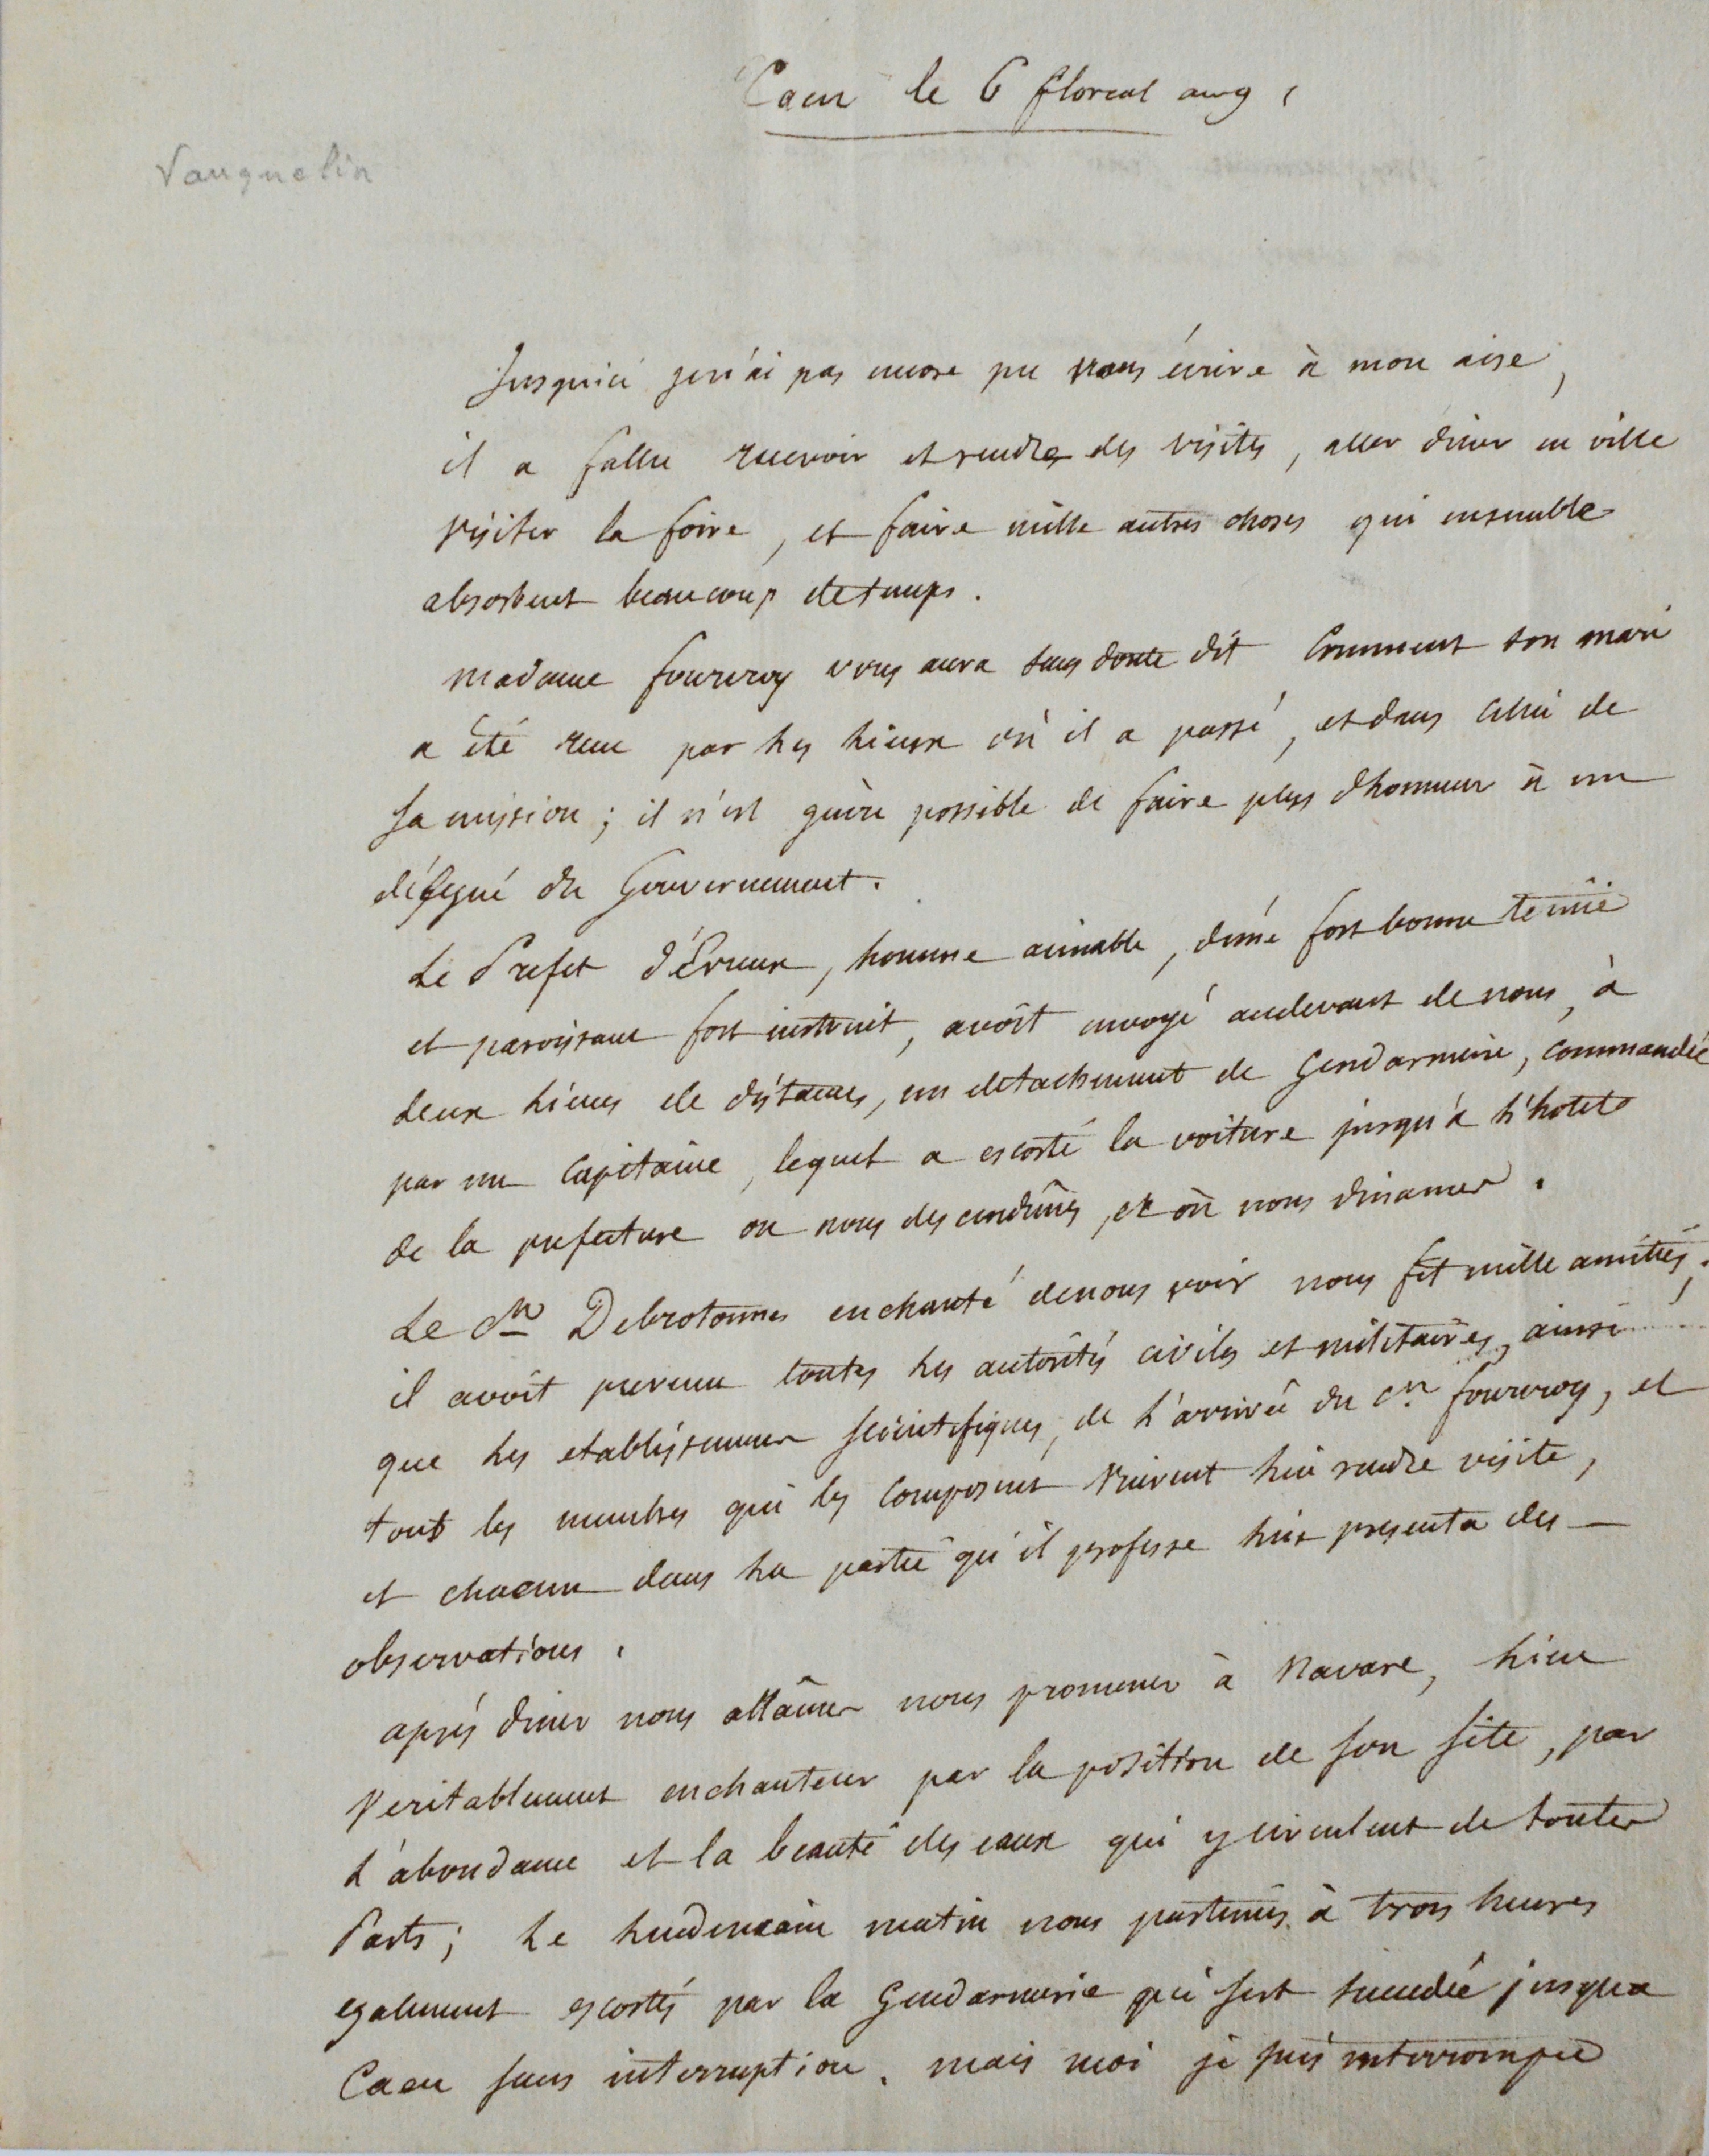 Caen le 6 floreal an 9
Vauquelin
Jusqu'ici je n'ai pas encore pu vous écrire à mon aise,
il a fallu recevoir et rendre des visites, aller diner en ville
visiter la foire, et faire mille autres choses qui ensemble
absorbent beaucoup de temps.
Madame fourcroy vous aura sans doute dit Comment son mari
a été recu par les lieux où il a passé, et dans celui de
sa mission; il n'est guère possible de faire plus d'honneur à un
délégué du Gouvernement.
Le Prefet d'Évreux, homme aimable, d'une fort bonne
et paroissant fort instruit, avoit envoyé audevant de nous, à
deux lieues de distances, un detachement de Gendarmerie, commandée
par un Capitaine, lequel a escorté la voiture jusqu'à l'hotel
de la prefecture ou nous descendimes, et où nous dinames.
Le Cen Debrotonnes enchanté de nous voir nous fit mille amitiés;
il avoit prevenu toutes les autorités civiles et militaires, ainsi
que les etablissemens scientifiques, de l'arrivée du Cen fourcroy, et
tous les membres qui les composent vinrent lui rendre visite,
et chacun dans la partie qu'il professe lui presenta des
observations.
après diner nous allâmes nous promener à Navare, lieu
veritablement enchanteur par la position de son site, par
l'abondance et la beauté des eaux qui y circulent de toutes
Parts; le lendemain matin nous partimes à trois heures
egalement escortés par la Gendarmerie qui s'est succedée jusqua
Caen sans interruption. mais moi je suis interrompu